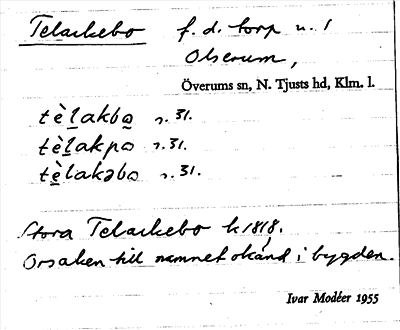 Telackebo f. d. torp u. /
Olserum,
Överums sn, N. Tjusts hd, Klm. l.
tèl̲akbo̲ s. 31.
tèl̲akpo s. 31.
tè̲lakəbo s. 31.
Stora Telackebo k 1818.
Orsaken till namnet okänd i bygden.
Ivar Modéer 1955